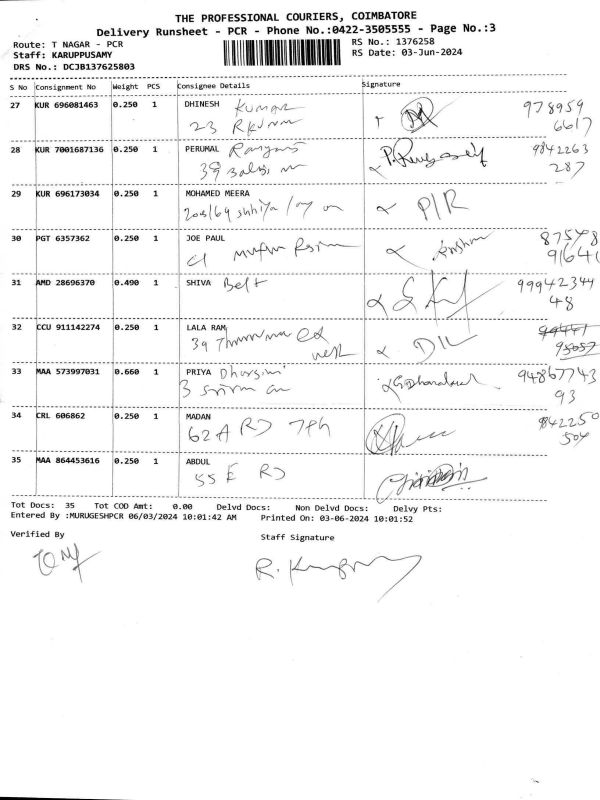 THE PROFESSIONAL COURIERS, COIMBATORE
Delivery Runsheet - PCR - Phone No.:0422-3505555 - Page No.:3
Route: T NAGAR - PCR RS No.: 1376258
Staff: KARUPPUSAMY RS Date: 03-Jun-2024
DRS No.: DCJB137625803
S No Consignment No Weight PCS Consignee Details Signature
27 KUR 696081463 0.250 1 DHINESH Kumar 978959
23 6617
28 KUR 7001687136 0.250 1 PERUMAL 9842263
39 287
29 KUR 696173034 0.250 1 MOHAMED MEERA
P/R
30 PGT 6357362 0.250 1 JOE PAUL 87548
91641
31 AMD 28696370 0.490 1 SHIVA Belt 99942344
48
32 CCU 911142274 0.250 1 LALA RAM
39 west D/L 95057
33 MAA 573997031 0.660 1 PRIYA Dharsini 94867743
3 93
34 CRL 606862 0.250 1 MADAN 842250
62 A RD 7th 504
35 MAA 864453616 0.250 1 ABDUL
55 E RD
Tot Docs: 35 Tot COD Amt: 0.00 Delvd Docs: Non Delvd Docs: Delvy Pts:
Entered By :MURUGESHPCR 06/03/2024 10:01:42 AM Printed On: 03-06-2024 10:01:52
Verified By Staff Signature